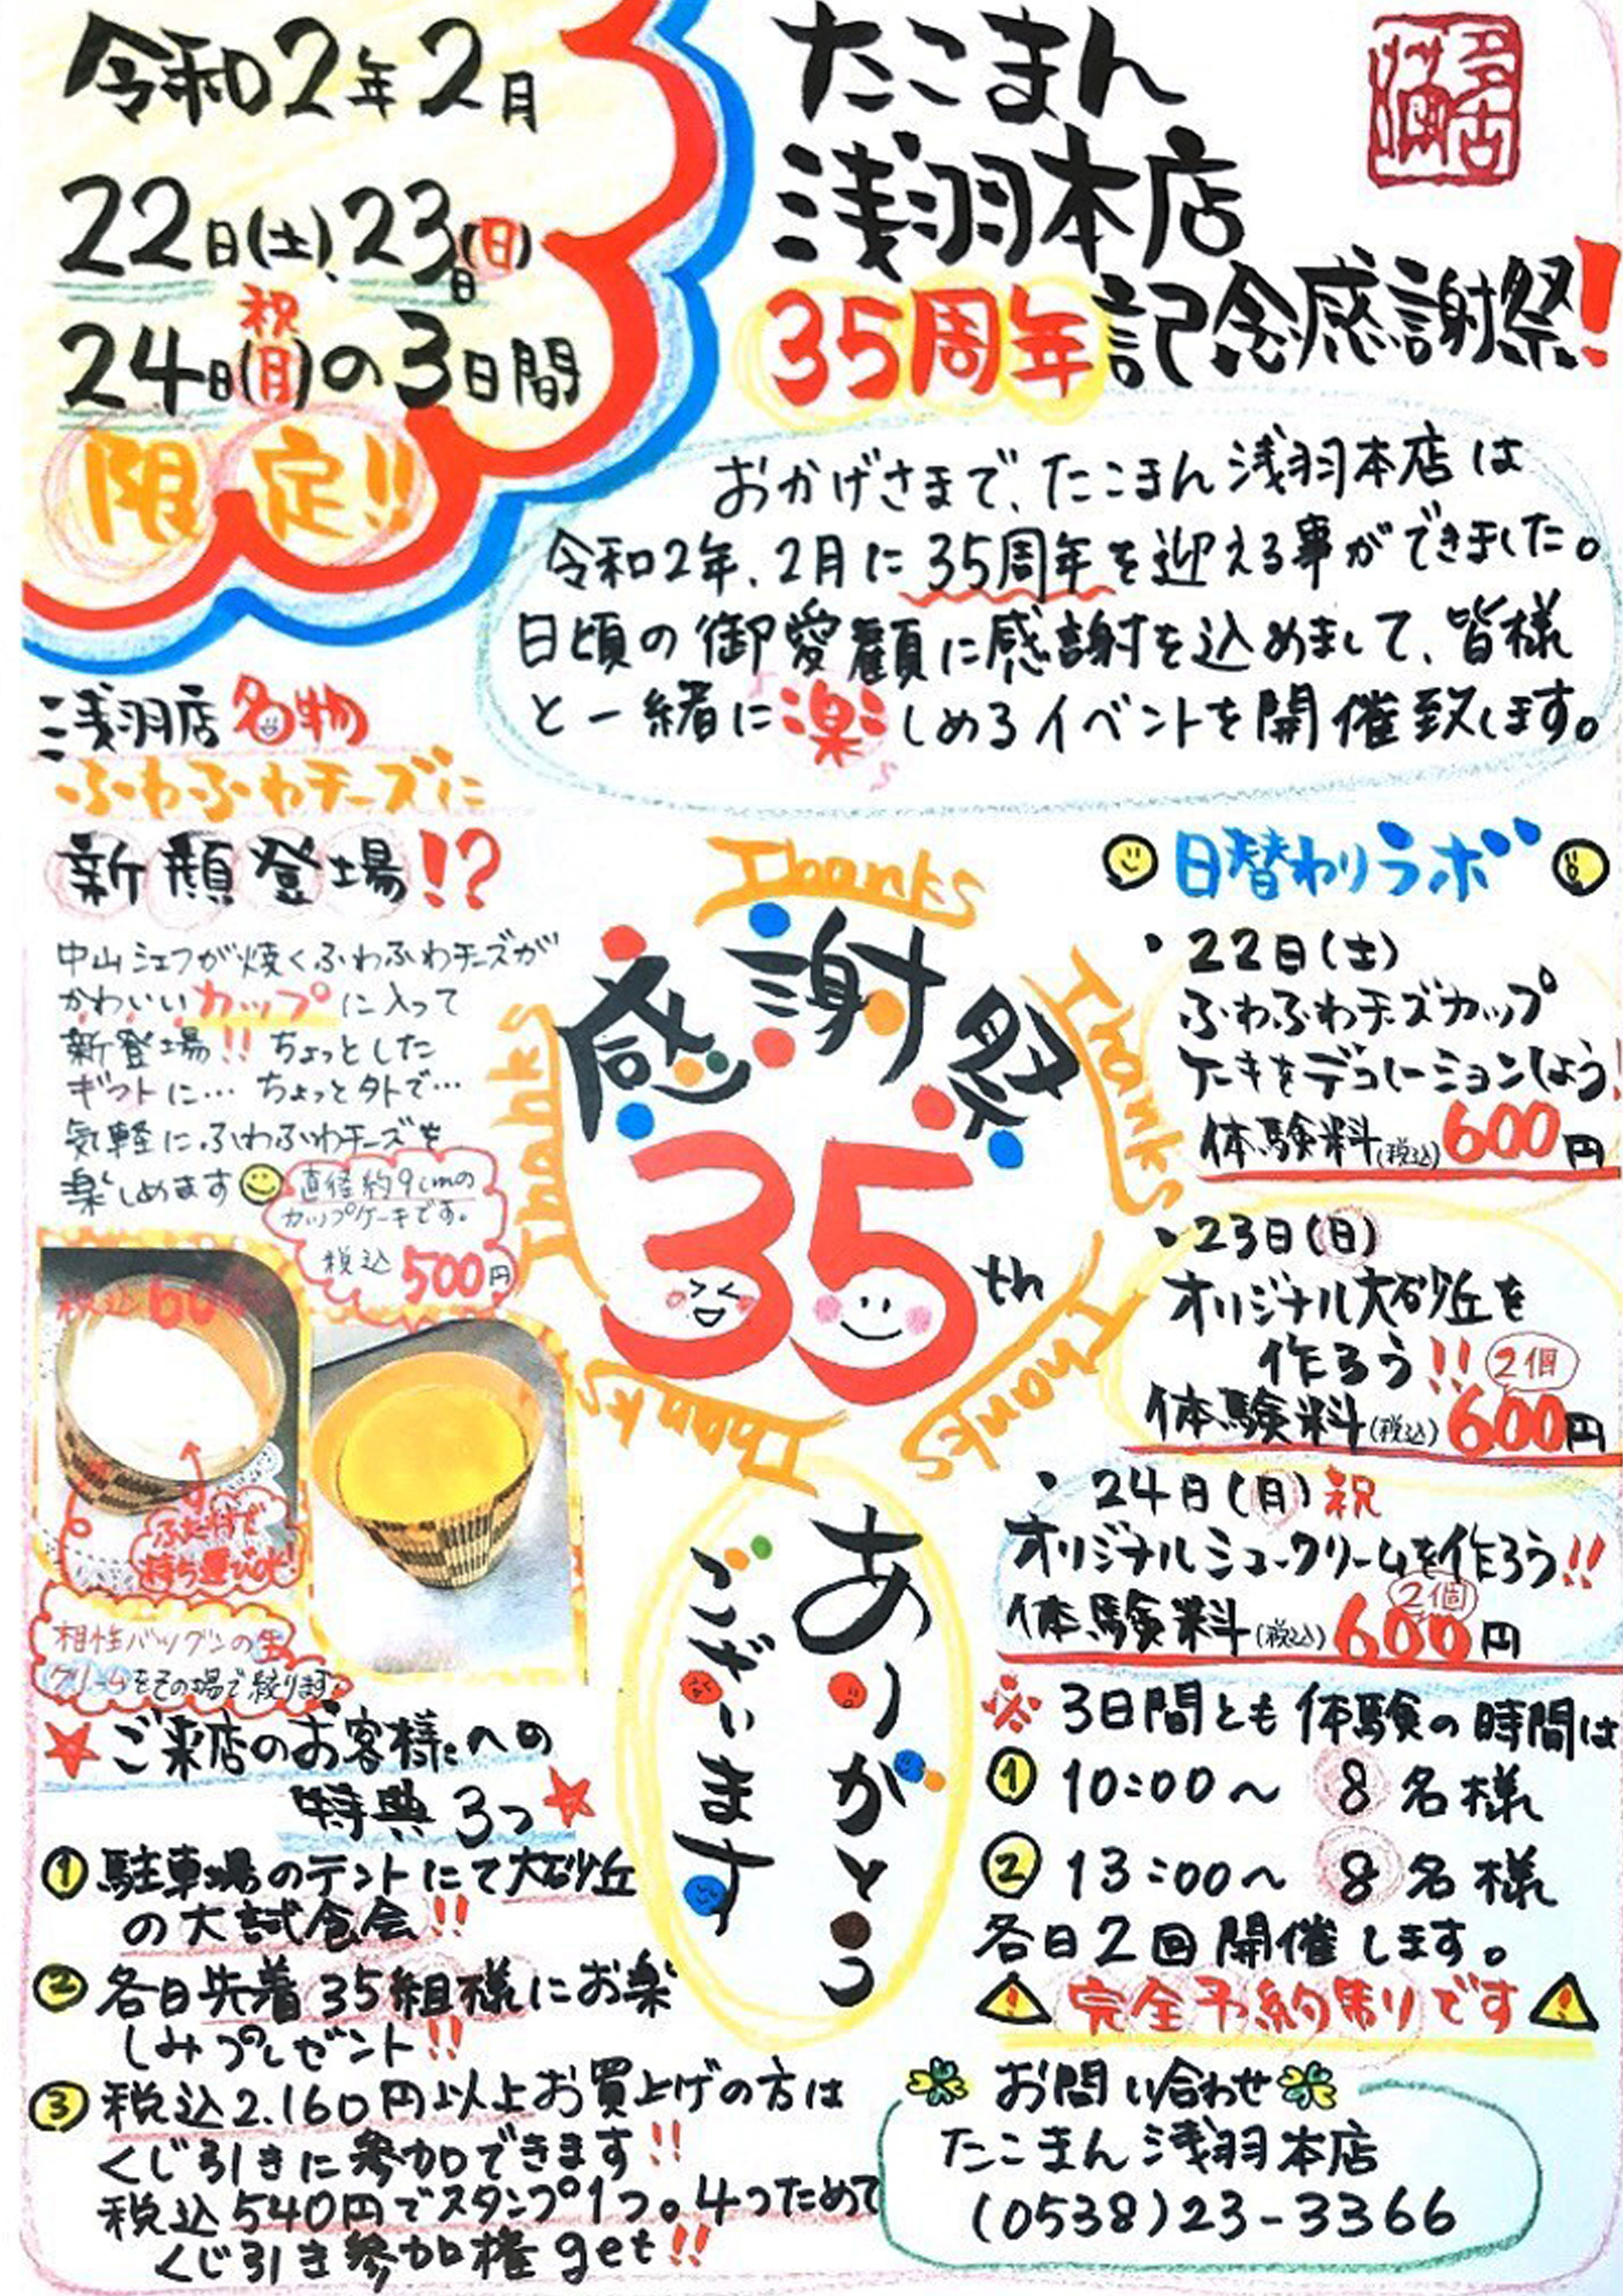 令和2年2月
22日(土)、23日(日)
24日(月)祝の3日間
限定!!
たこまん
浅羽本店
35周年記念感謝祭!
多古満
おかげさまで、たこまん浅羽本店は
令和2年、2月に35周年を迎える事ができました。
日頃の御愛顧に感謝を込めまして、皆様
と一緒に楽しめるイベントを開催致します。
浅羽店名物
ふわふわチーズに
新顔登場!?
中山シェフが焼くふわふわチーズが
かわいいカップに入って
新登場!! ちょっとした
ギフトに… ちょっと外で…
気軽にふわふわチーズを
楽しめます
直径約9cmの
カップケーキです。
税込500円
ふた付で
持ち運びOK!
相性バツグンの生
クリームをその場で絞ります。
Thanks
Thanks
Thanks
Thanks
Thanks
感謝祭
35th
ありがとう
ございます
日替わりラボ
・22日(土)
ふわふわチーズカップ
ケーキをデコレーションしよう!
体験料(税込)600円
・23日(日)
オリジナル大砂丘を
作ろう!! 2個
体験料(税込)600円
・24日(月)祝
オリジナルシュークリームを作ろう!!
2個
体験料(税込)600円
※3日間とも体験の時間は
① 10:00〜 8名様
② 13:00〜 8名様
各日2回開催します。
完全予約制りです
★ご来店のお客様への
特典3つ★
①駐車場のテントにて大砂丘
の大試食会!!
②各日先着35組様にお楽
しみプレゼント!!
③税込2.160円以上お買上げの方は
くじ引きに参加できます!!
税込540円でスタンプ1つ。4つためて
くじ引き参加権get!!
お問い合わせ
たこまん浅羽本店
(0538)23-3366